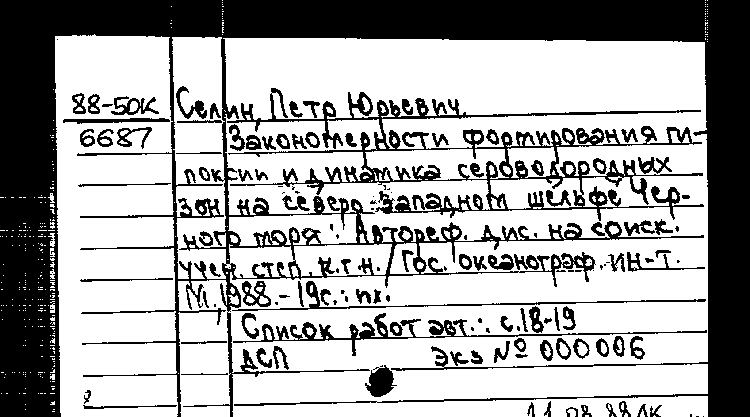 88-50К Селин, Петр Юрьевич.
6687 Закономерности формирования ги-
поксии и динамика сероводородных
зон на северо-западном шельфе Чер-
ного моря : Автореф. дис. на соиск.
учен. степ. к.г.н. / Гос. океанограф. ин-т.
М., 1988. - 19с. : пл.
Список работ авт. : с.18-19
ДСП Экз № 000006
11.08.88ЛК